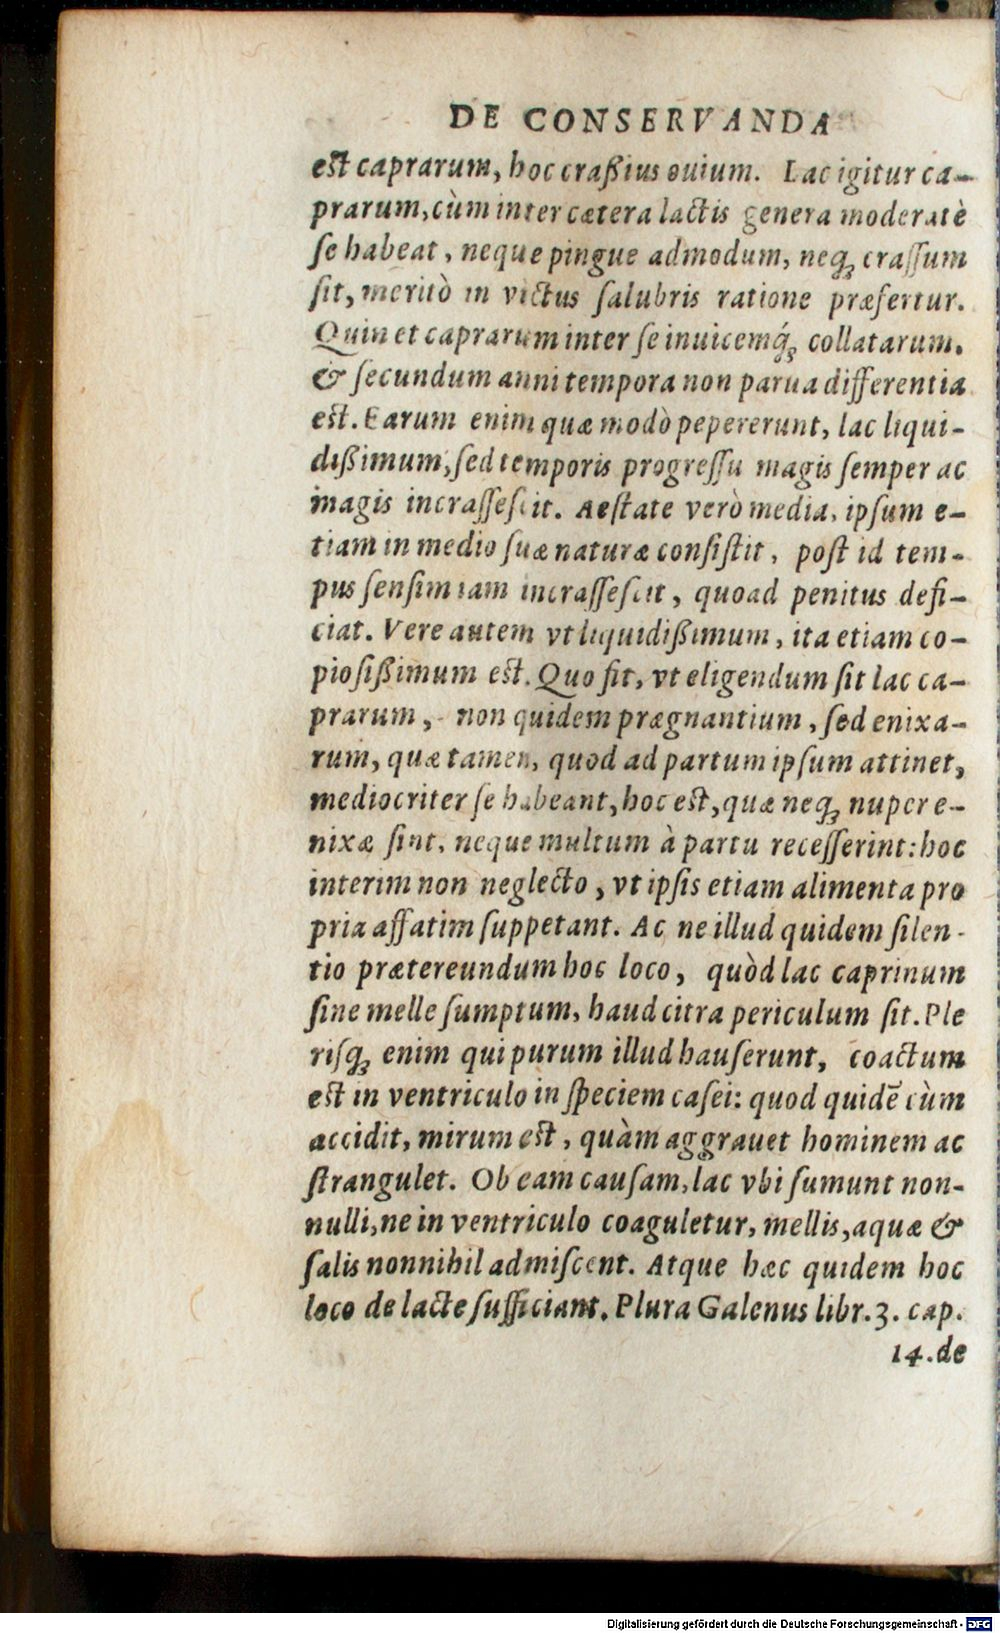 DE CONSERVANDA
est caprarum, hoc craßius ouium. Lac igitur ca-
prarum, cùm inter cætera lactis genera moderatè
ſe habeat, neque pingue admodum, neq; craſſum
ſit, meritò in victus ſalubris ratione præfertur.
Quin et caprarum inter ſe inuicemq́; collatarum.
& ſecundum anni tempora non parua differentia
est. Earum enim quæ modò pepererunt, lac liqui-
dißimum, ſed temporis progreſſu magis ſemper ac
magis incraſſeſcit. Aeſtate verò media, ipſum e-
tiam in medio ſuæ naturæ conſiſtit, poſt id tem-
pus ſenſim iam incraſſeſcit, quoad penitus defi-
ciat. Vere autem vt liquidißimum, ita etiam co-
pioſißimum est. Quo fit, vt eligendum ſit lac ca-
prarum, non quidem prægnantium, ſed enixa-
rum, quæ tamen, quod ad partum ipſum attinet,
mediocriter ſe habeant, hoc est, quæ neq; nuper e-
nixæ ſint, neque multum à partu receſſerint: hoc
interim non neglecto, vt ipſis etiam alimenta pro
pria affatim ſuppetant. Ac ne illud quidem ſilen-
tio prætereundum hoc loco, quòd lac caprinum
ſine melle ſumptum, haud citra periculum ſit. Ple
riſq; enim qui purum illud hauſerunt, coactum
est in ventriculo in ſpeciem caſei: quod quidē cùm
accidit, mirum est, quàm aggrauet hominem ac
ſtrangulet. Ob eam cauſam, lac vbi ſumunt non-
nulli, ne in ventriculo coaguletur, mellis, aquæ &
ſalis nonnihil admiſcent. Atque hæc quidem hoc
loco de lacte ſufficiant. Plura Galenus libr. 3. cap.
14. de
Digitalisierung gefördert durch die Deutsche Forschungsgemeinschaft - DFG